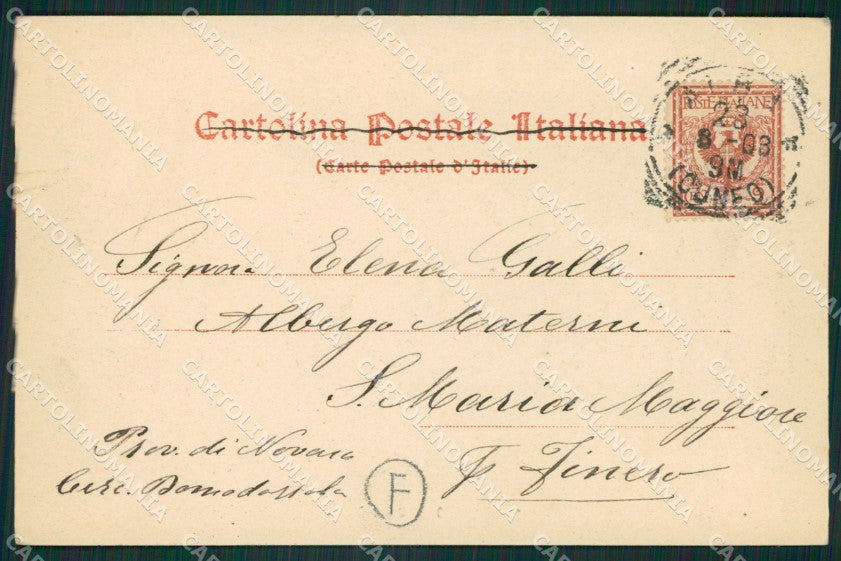 Cartolina Postale Italiana
(Carte Postale d'Italie)
POSTE ITALIANE
23
8 - 03
9M
(CUNEO)
Signora Elena Galli
Albergo Materni
S. Maria Maggiore
Prov. di Novara
Circ. Domodossola
F
CARTOLINOMANIA